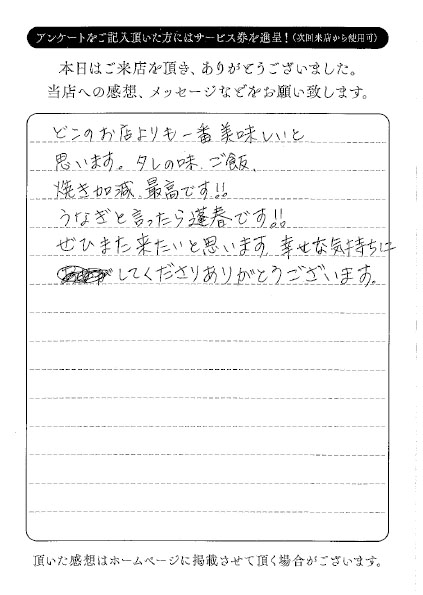 アンケートをご記入頂いた方にはサービス券を進呈！（次回来店から使用可）
本日はご来店を頂き、ありがとうございました。
当店への感想、メッセージなどをお願い致します。
どこのお店よりも一番美味しいと
思います。タレの味、ご飯、
焼き加減、最高です!!
うなぎと言ったら蓬春です!!
ぜひまた来たいと思います。幸せな気持ちに
してくださりありがとうございます。
頂いた感想はホームページに掲載させて頂く場合がございます。